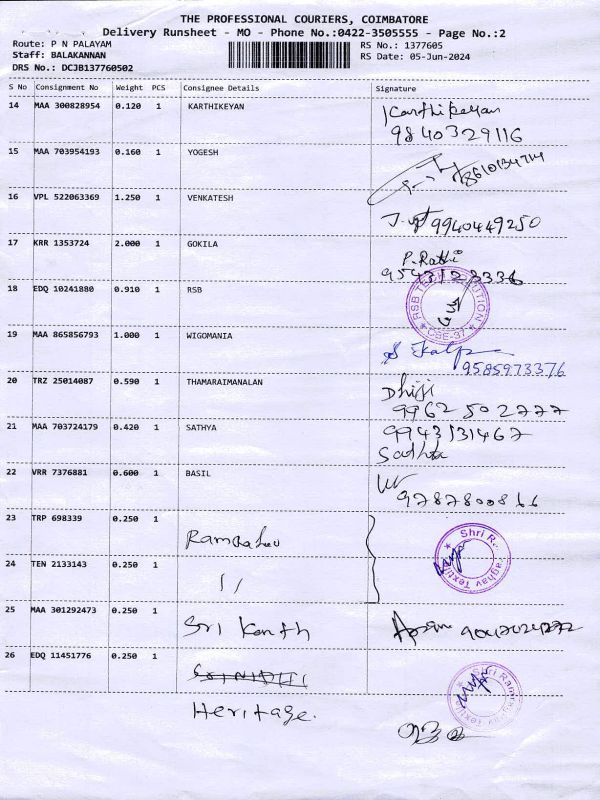 THE PROFESSIONAL COURIERS, COIMBATORE
Delivery Runsheet - MO - Phone No.:0422-3505555 - Page No.:2
Route: P N PALAYAM RS No.: 1377605
Staff: BALAKANNAN RS Date: 05-Jun-2024
DRS No.: DCJB137760502
S No Consignment No Weight PCS Consignee Details Signature
14 MAA 300828954 0.120 1 KARTHIKEYAN Karthikeyan
9840329116
15 MAA 703954193 0.160 1 YOGESH
16 VPL 522063369 1.250 1 VENKATESH
9940449250
17 KRR 1353724 2.000 1 GOKILA P. Rathi
18 EDQ 10241880 0.910 1 RSB
CBE-37
19 MAA 865856793 1.000 1 WIGOMANIA
9585973376
20 TRZ 25014087 0.590 1 THAMARAIMANALAN Dhiji
9962502777
21 MAA 703724179 0.420 1 SATHYA 9943131467
Sathya
22 VRR 7376881 0.600 1 BASIL
23 TRP 698339 0.250 1 Shri
24 TEN 2133143 0.250 1 ,,
25 MAA 301292473 0.250 1 Sri Kanth
26 EDQ 11451776 0.250 1 Shri
Heritage.